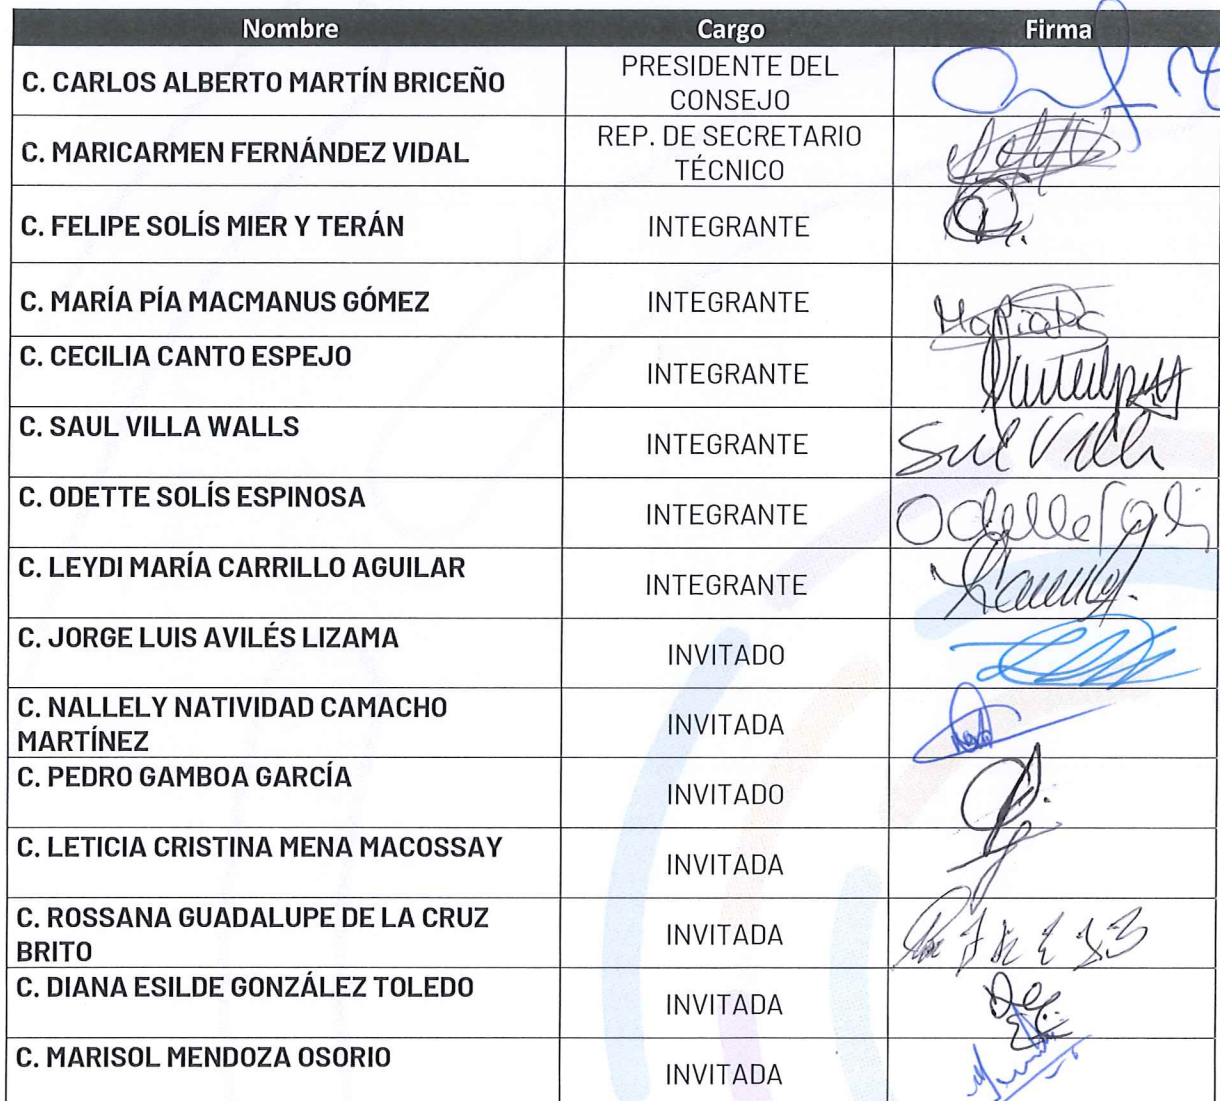 Nombre Cargo Firma
C. CARLOS ALBERTO MARTÍN BRICEÑO PRESIDENTE DEL
CONSEJO
C. MARICARMEN FERNÁNDEZ VIDAL REP. DE SECRETARIO
TÉCNICO
C. FELIPE SOLÍS MIER Y TERÁN INTEGRANTE
C. MARÍA PÍA MACMANUS GÓMEZ INTEGRANTE
C. CECILIA CANTO ESPEJO INTEGRANTE
C. SAUL VILLA WALLS INTEGRANTE
C. ODETTE SOLÍS ESPINOSA INTEGRANTE
C. LEYDI MARÍA CARRILLO AGUILAR INTEGRANTE
C. JORGE LUIS AVILÉS LIZAMA INVITADO
C. NALLELY NATIVIDAD CAMACHO
MARTÍNEZ INVITADA
C. PEDRO GAMBOA GARCÍA INVITADO
C. LETICIA CRISTINA MENA MACOSSAY INVITADA
C. ROSSANA GUADALUPE DE LA CRUZ
BRITO INVITADA
C. DIANA ESILDE GONZÁLEZ TOLEDO INVITADA
C. MARISOL MENDOZA OSORIO INVITADA